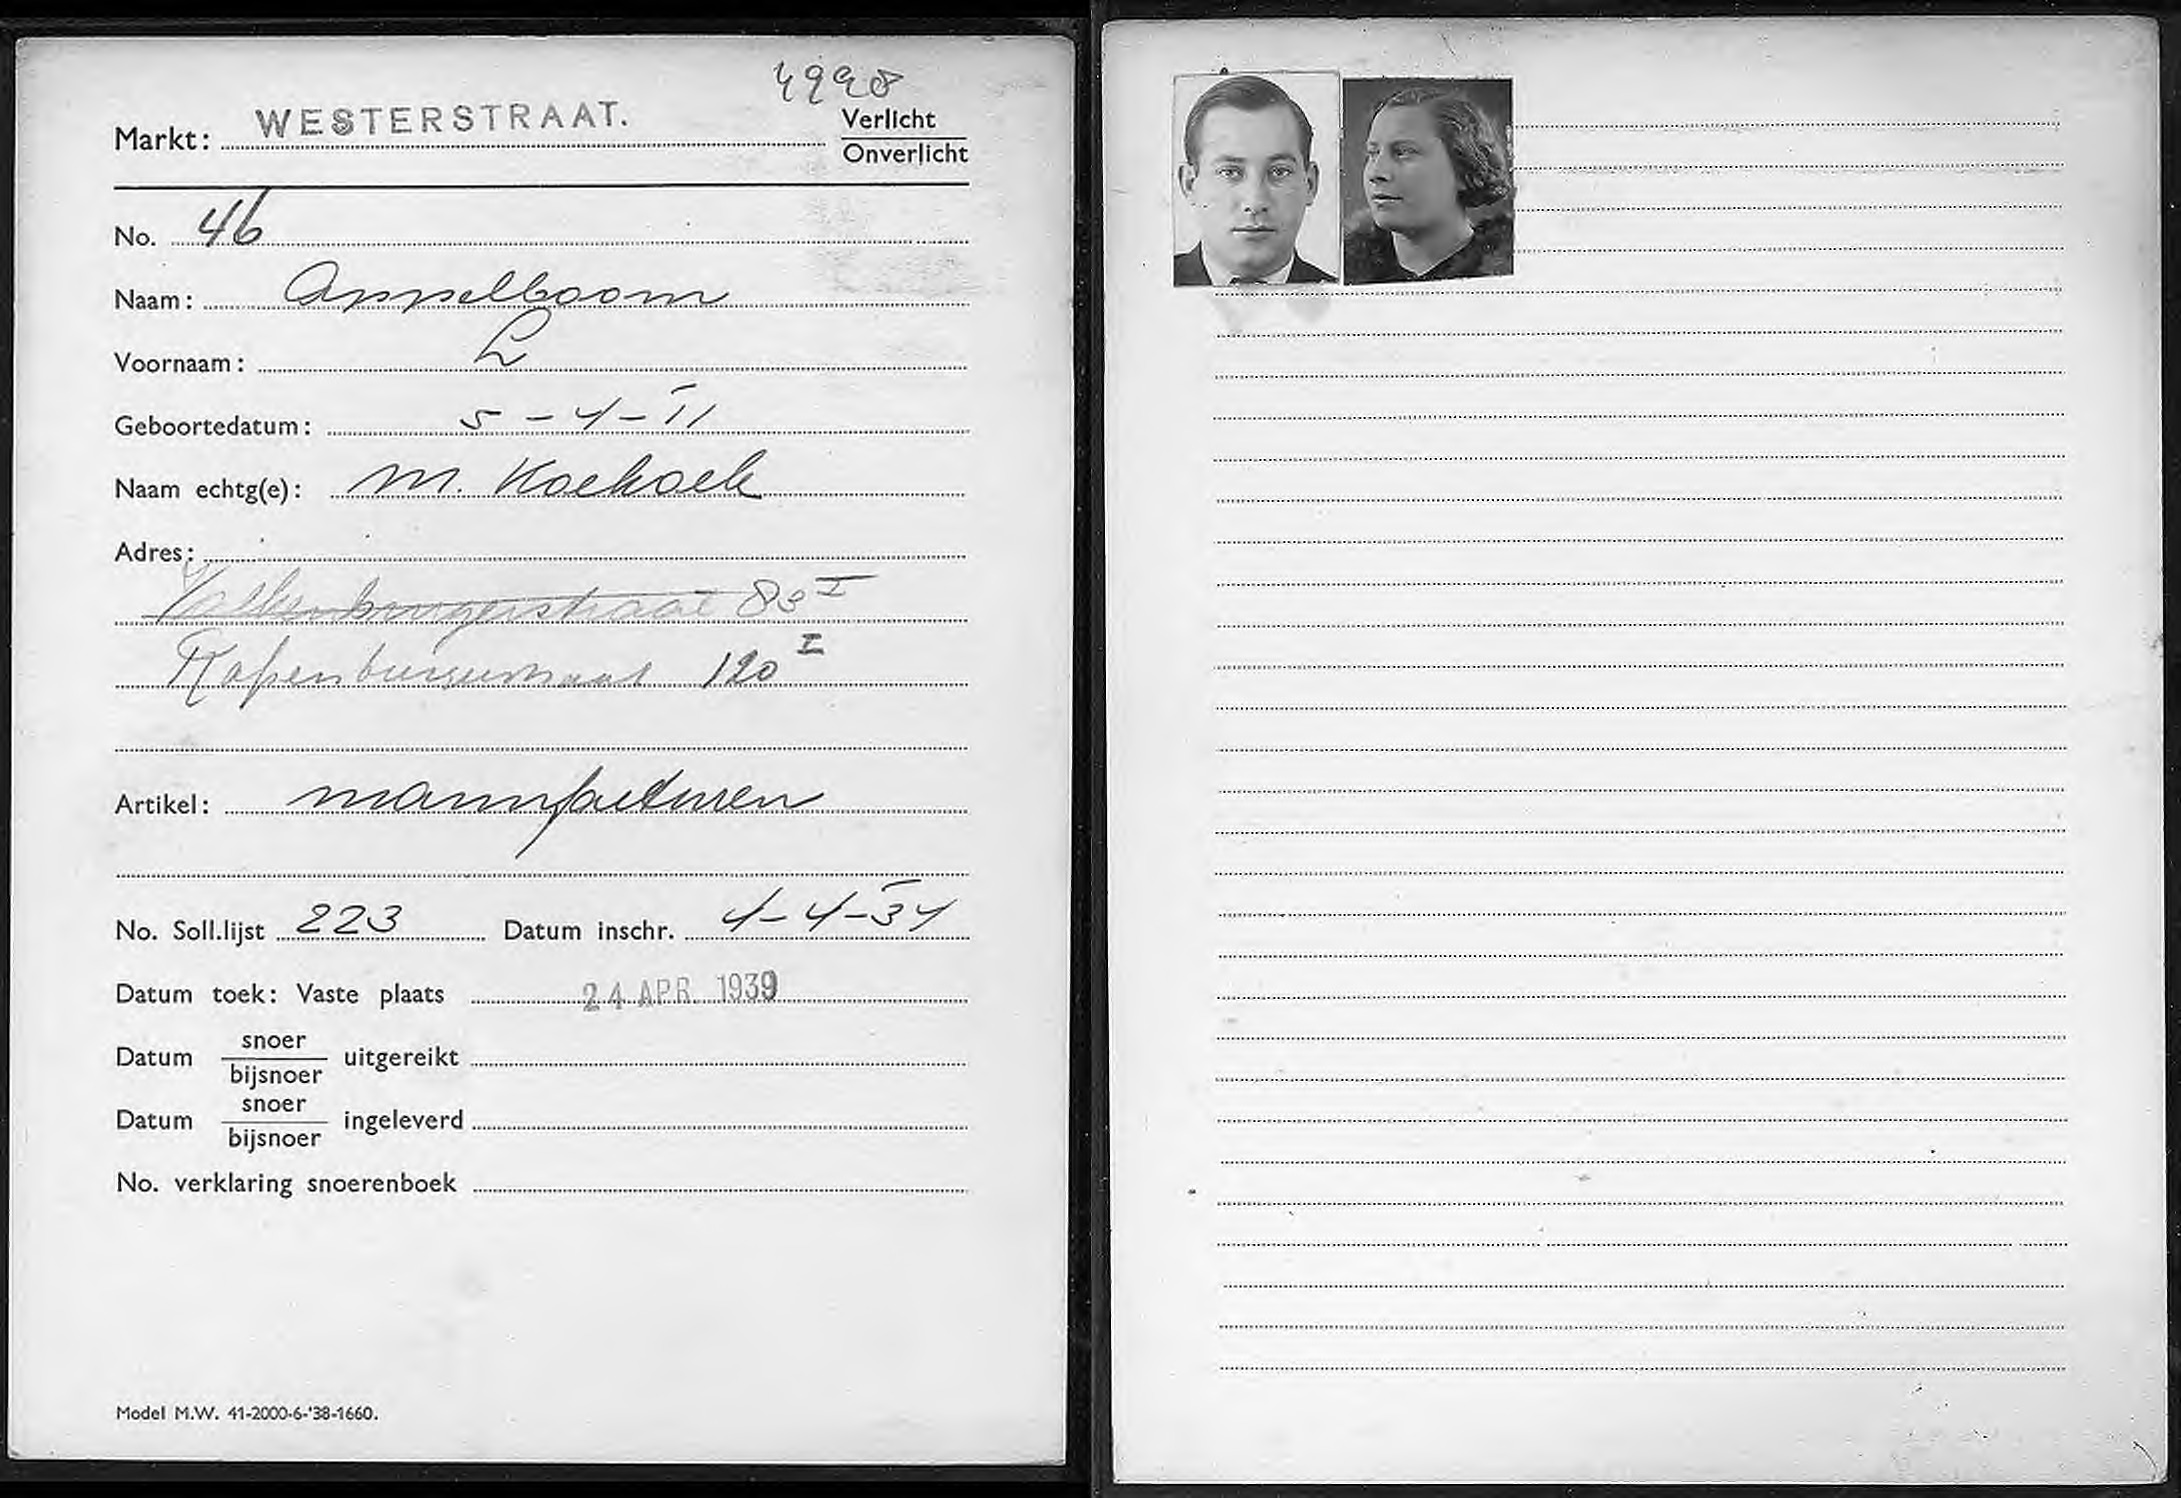 4998
Markt: WESTERSTRAAT.
Verlicht
Onverlicht
No. 46
Naam: Appelboom
Voornaam: L
Geboortedatum: 5-4-'11
Naam echtg(e): M. Koekoek
Adres:
Valkenburgerstraat 83 I
Rapenburgerstraat 120 I
Artikel: manufacturen
No. Soll.lijst 223 Datum inschr. 4-4-'34
Datum toek: Vaste plaats 24 APR. 1939
Datum snoer/bijsnoer uitgereikt
Datum snoer/bijsnoer ingeleverd
No. verklaring snoerenboek
Model M.W. 41-2000-6-'38-1660.